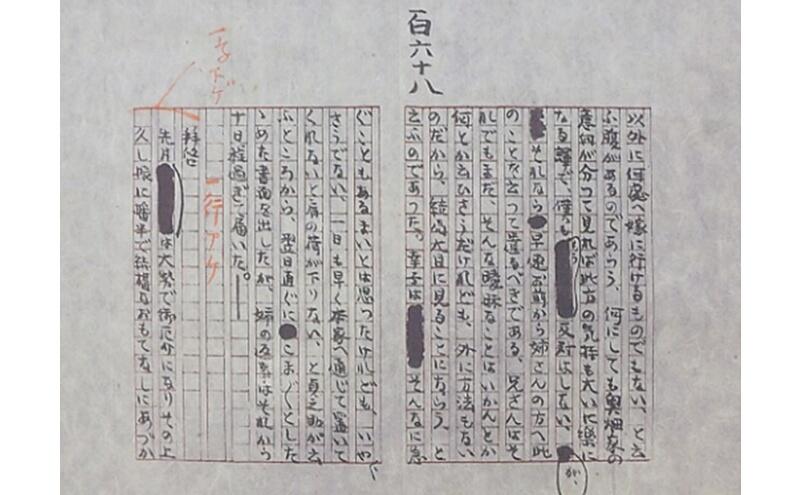 百六十八
以外に何處へ嫁に行けるものでもない、と云
ふ腹があるのであらう、何にしても奥畑家の
意向が分つて見れば此方の気持も大いに樂に
なる譯で、僕も反對はしない、が、
それなら早速お前から姉さんの方へ此
のことを云つて遣るべきである、兄さんはそ
れでもまだ、そんな曖昧なことはいかんとか
何とか云ひさうだけれども、外に方法もない
のだから、結局大目に見ることにならう、と
云ふのであつた。幸子はそんなに急
ぐこともあるまいとは思つたけれども、いや
さうでない、一日も早く本家へ通じて置いて
くれないと肩の荷が下りない、と貞之助が云
ふところから、翌日直ぐにこま〲とした
ゝめた書面を出したが、姉の返事はそれから
十日程過ぎて届いた。
一行アケ
一字下ゲ
拝啓
先月は大勢で御厄介になりその上
久し振に播半で結構なおもてなしにあづか